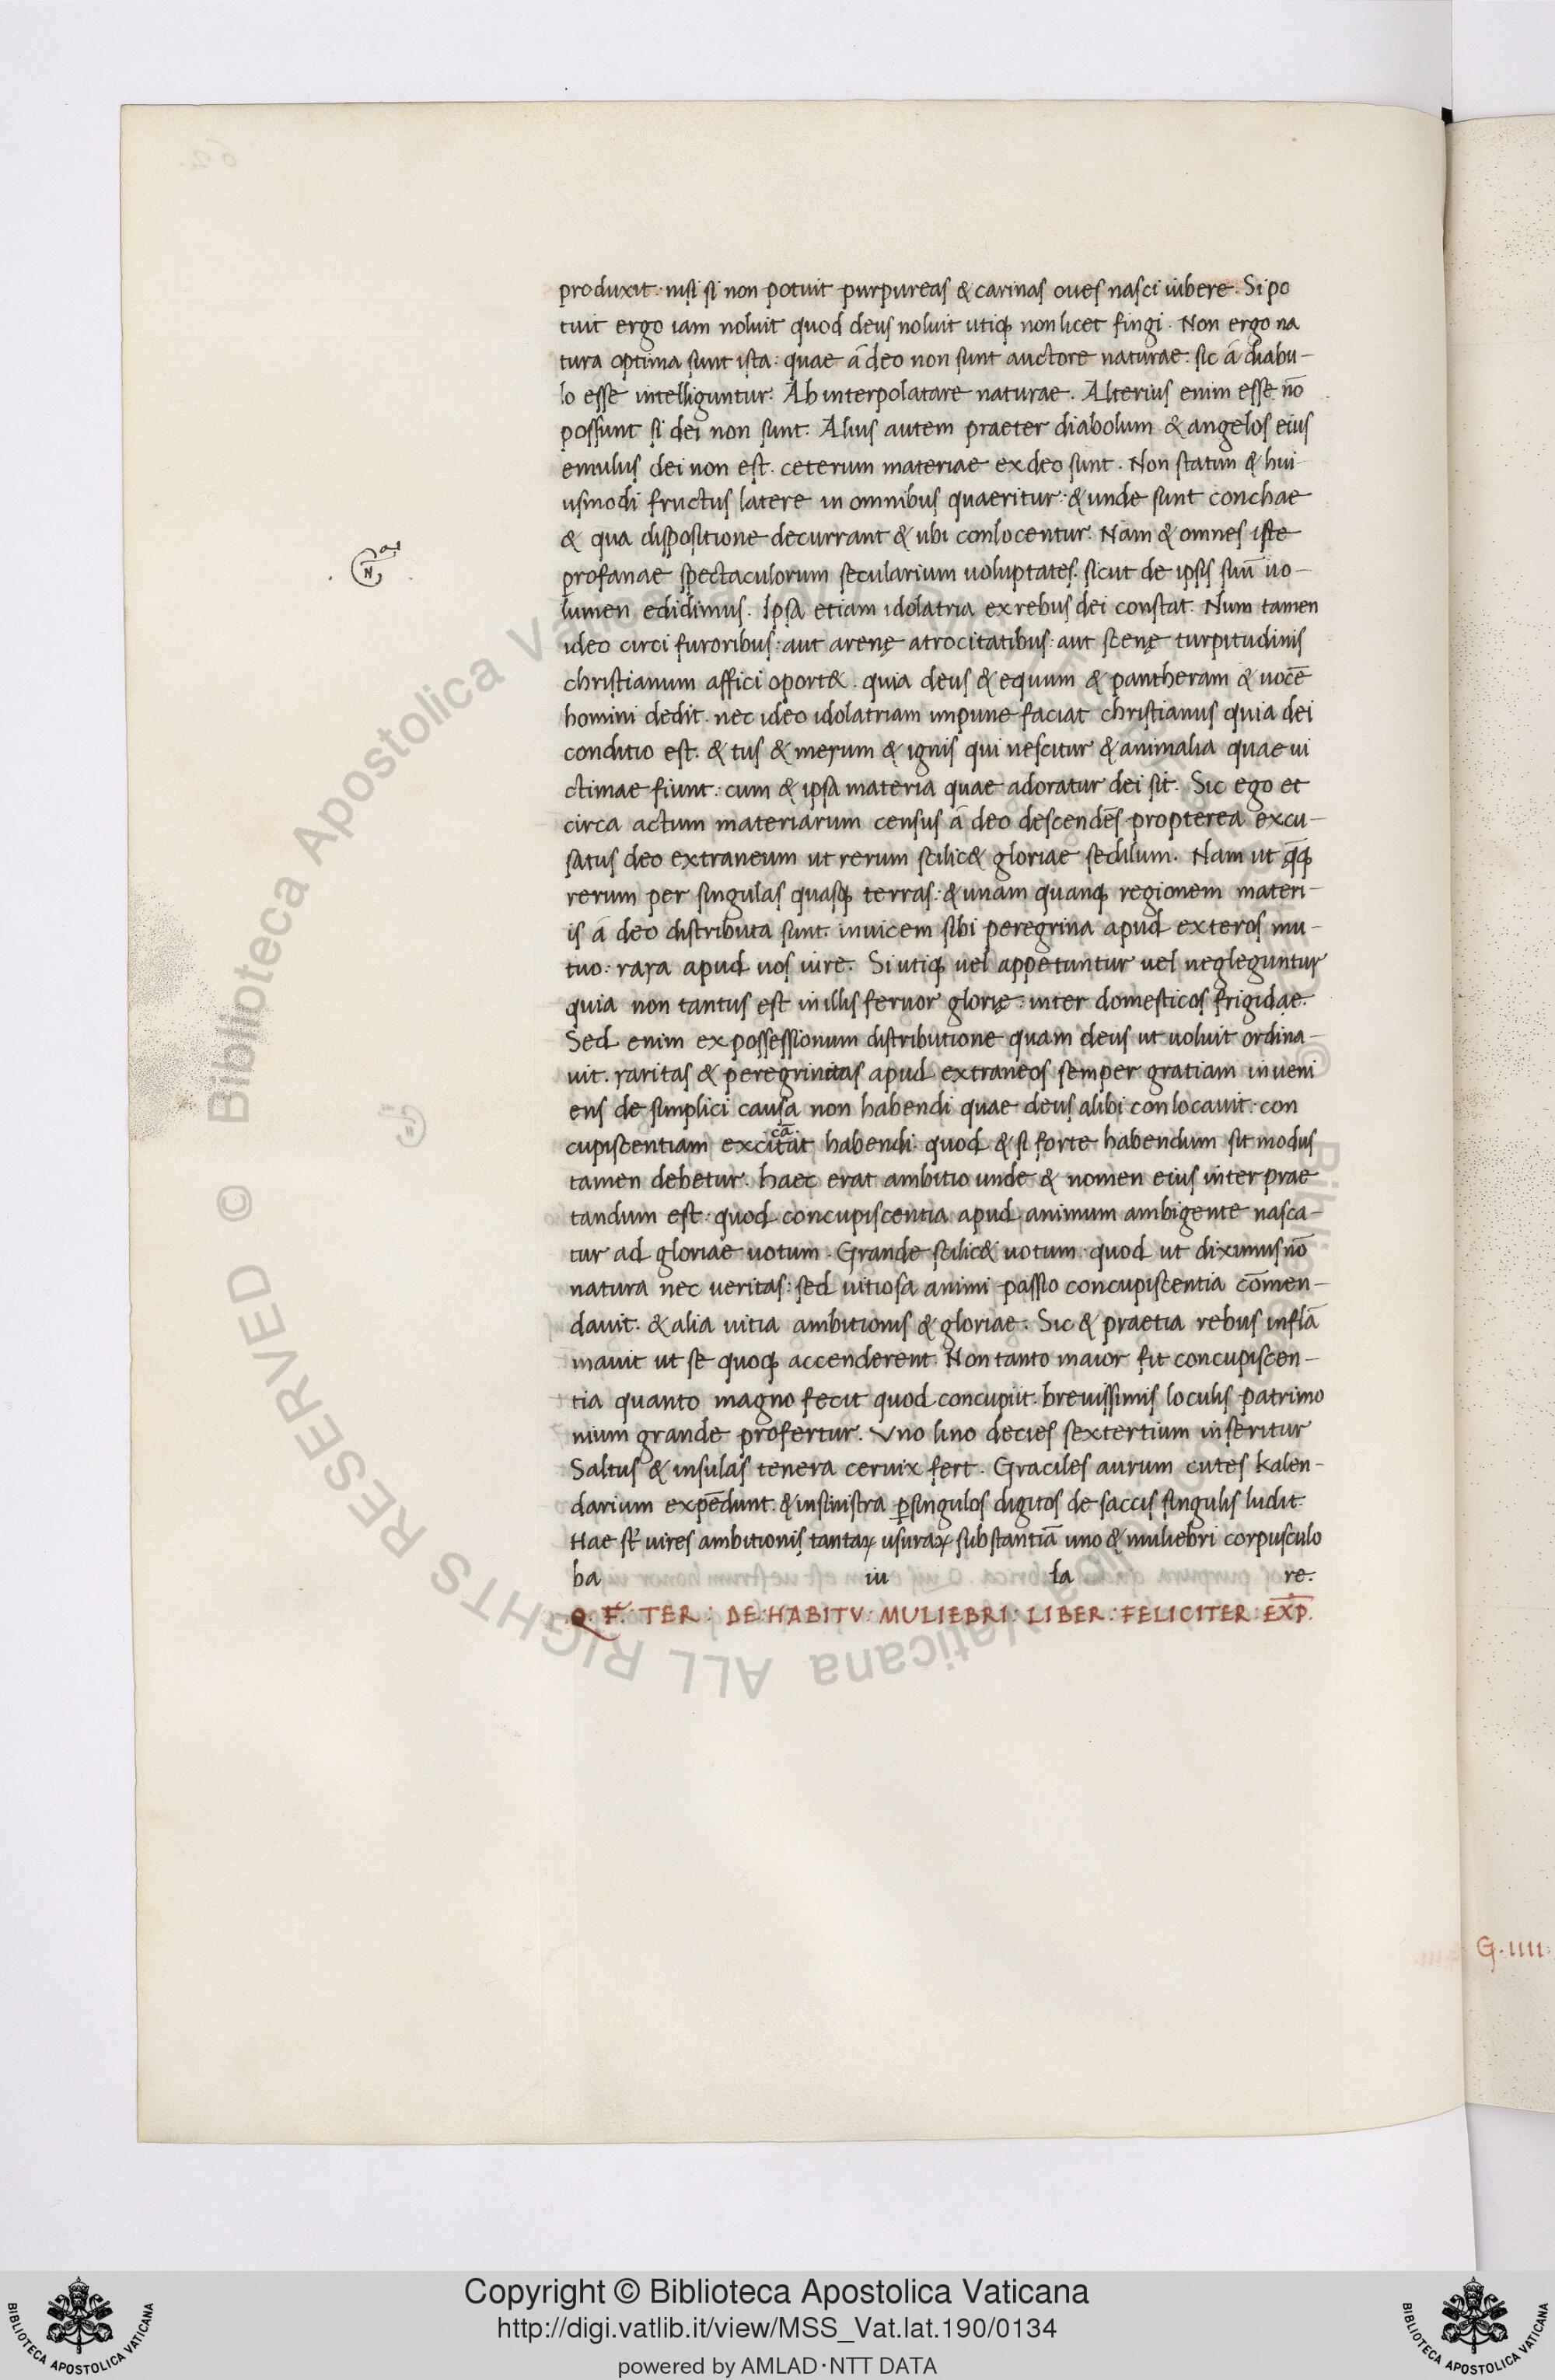 produxit: nisi si non potuit purpureas & carinas oues nasci iubere. Si po
tuit ergo iam noluit quod deus noluit utiqꝫ non licet fingi. Non ergo na
tura optima sunt ista: quae á deo non sunt auctore naturae: sic á diabu-
lo esse intelliguntur. Ab interpolatare naturae. Alterius enim esse nō
possunt si dei non sunt. Alius autem praeter diabolum & angelos eius
emulus dei non est. ceterum materiae ex deo sunt. Non statim & hui
usmodi fructus latere in omnibus quaeritur: & unde sunt conchae
& qua dispositione decurrant & ubi conlocentur. Nam & omnes iste
profanae spectaculorum secularium uoluptates. sicut de ipsis suū uo-
lumen edidimus. Ipsa etiam idolatria ex rebus dei constat. Num tamen
ideo circi furoribus: aut arenę atrocitatibus: aut scenę turpitudinis
christianum affici oport&. quia deus & equum & pantheram & uocē
homini dedit. nec ideo idolatriam impune faciat christianus quia dei
conditio est. & tus & merum & ignis qui nescitur & animalia quae ui
ctimae fiunt: cum & ipsa materia quae adoratur dei sit. Sic ego et
circa actum materiarum census á deo descendēs propterea excu-
satus deo extraneum ut rerum scilic& gloriae sedilum. Nam ut q̄qꝫ
rerum per singulas quasqꝫ terras: & unam quanqꝫ regionem materi-
is á deo distributa sunt. inuicem sibi peregrina apud exteros mu-
tuo: rara apud uos iure. Si utiqꝫ uel appetuntur uel negleguntur
quia non tantus est in illis feruor glorię: inter domesticos frigidae.
Sed enim ex possessionum distributione quam deus ut uoluit ordina-
uit. raritas & peregrinitas apud extraneos semper gratiam inueni
ens de simplici causa non habendi quae deus alibi conlocauit: con
cā
cupiscentiam excitat habendi. quod & si forte habendum sit modus
tamen debetur. haec erat ambitio unde & nomen eius inter prae
tandum est: quod concupiscentia apud animum ambigente nasca-
tur ad gloriae uotum. Grande scilic& uotum: quod ut diximus nō
natura nec ueritas: sed uitiosa animi passio concupiscentia cōmen-
dauit. & alia uitia ambitionis & gloriae. Sic & praetia rebus inflā
mauit ut se quoqꝫ accenderent. Non tanto maior fit concupiscen-
tia quanto magno fecit quod concupiit. breuissimis loculis patrimo
nium grande profertur. Uno lino decies sextertium inseritur
Saltus & insulas tenera ceruix fert. Graciles aurum cutes kalen-
darium expēdunt. & in sinistra ꝑ singulos digitos de saccis singulis ludit.
Hae st̄ uires ambitionis tantaꝝ usuraꝝ substantiā uno & muliebri corpusculo
ba iu la re.
Q. F. TER: DE: HABITV: MULIEBRI: LIBER: FELICITER: EXP.
G. IIII.
© Biblioteca Apostolica Vaticana ALL RIGHTS RESERVED
Copyright © Biblioteca Apostolica Vaticana
http://digi.vatlib.it/view/MSS_Vat.lat.190/0134
powered by AMLAD·NTT DATA
BIBLIOTECA APOSTOLICA VATICANA
BIBLIOTECA APOSTOLICA VATICANA